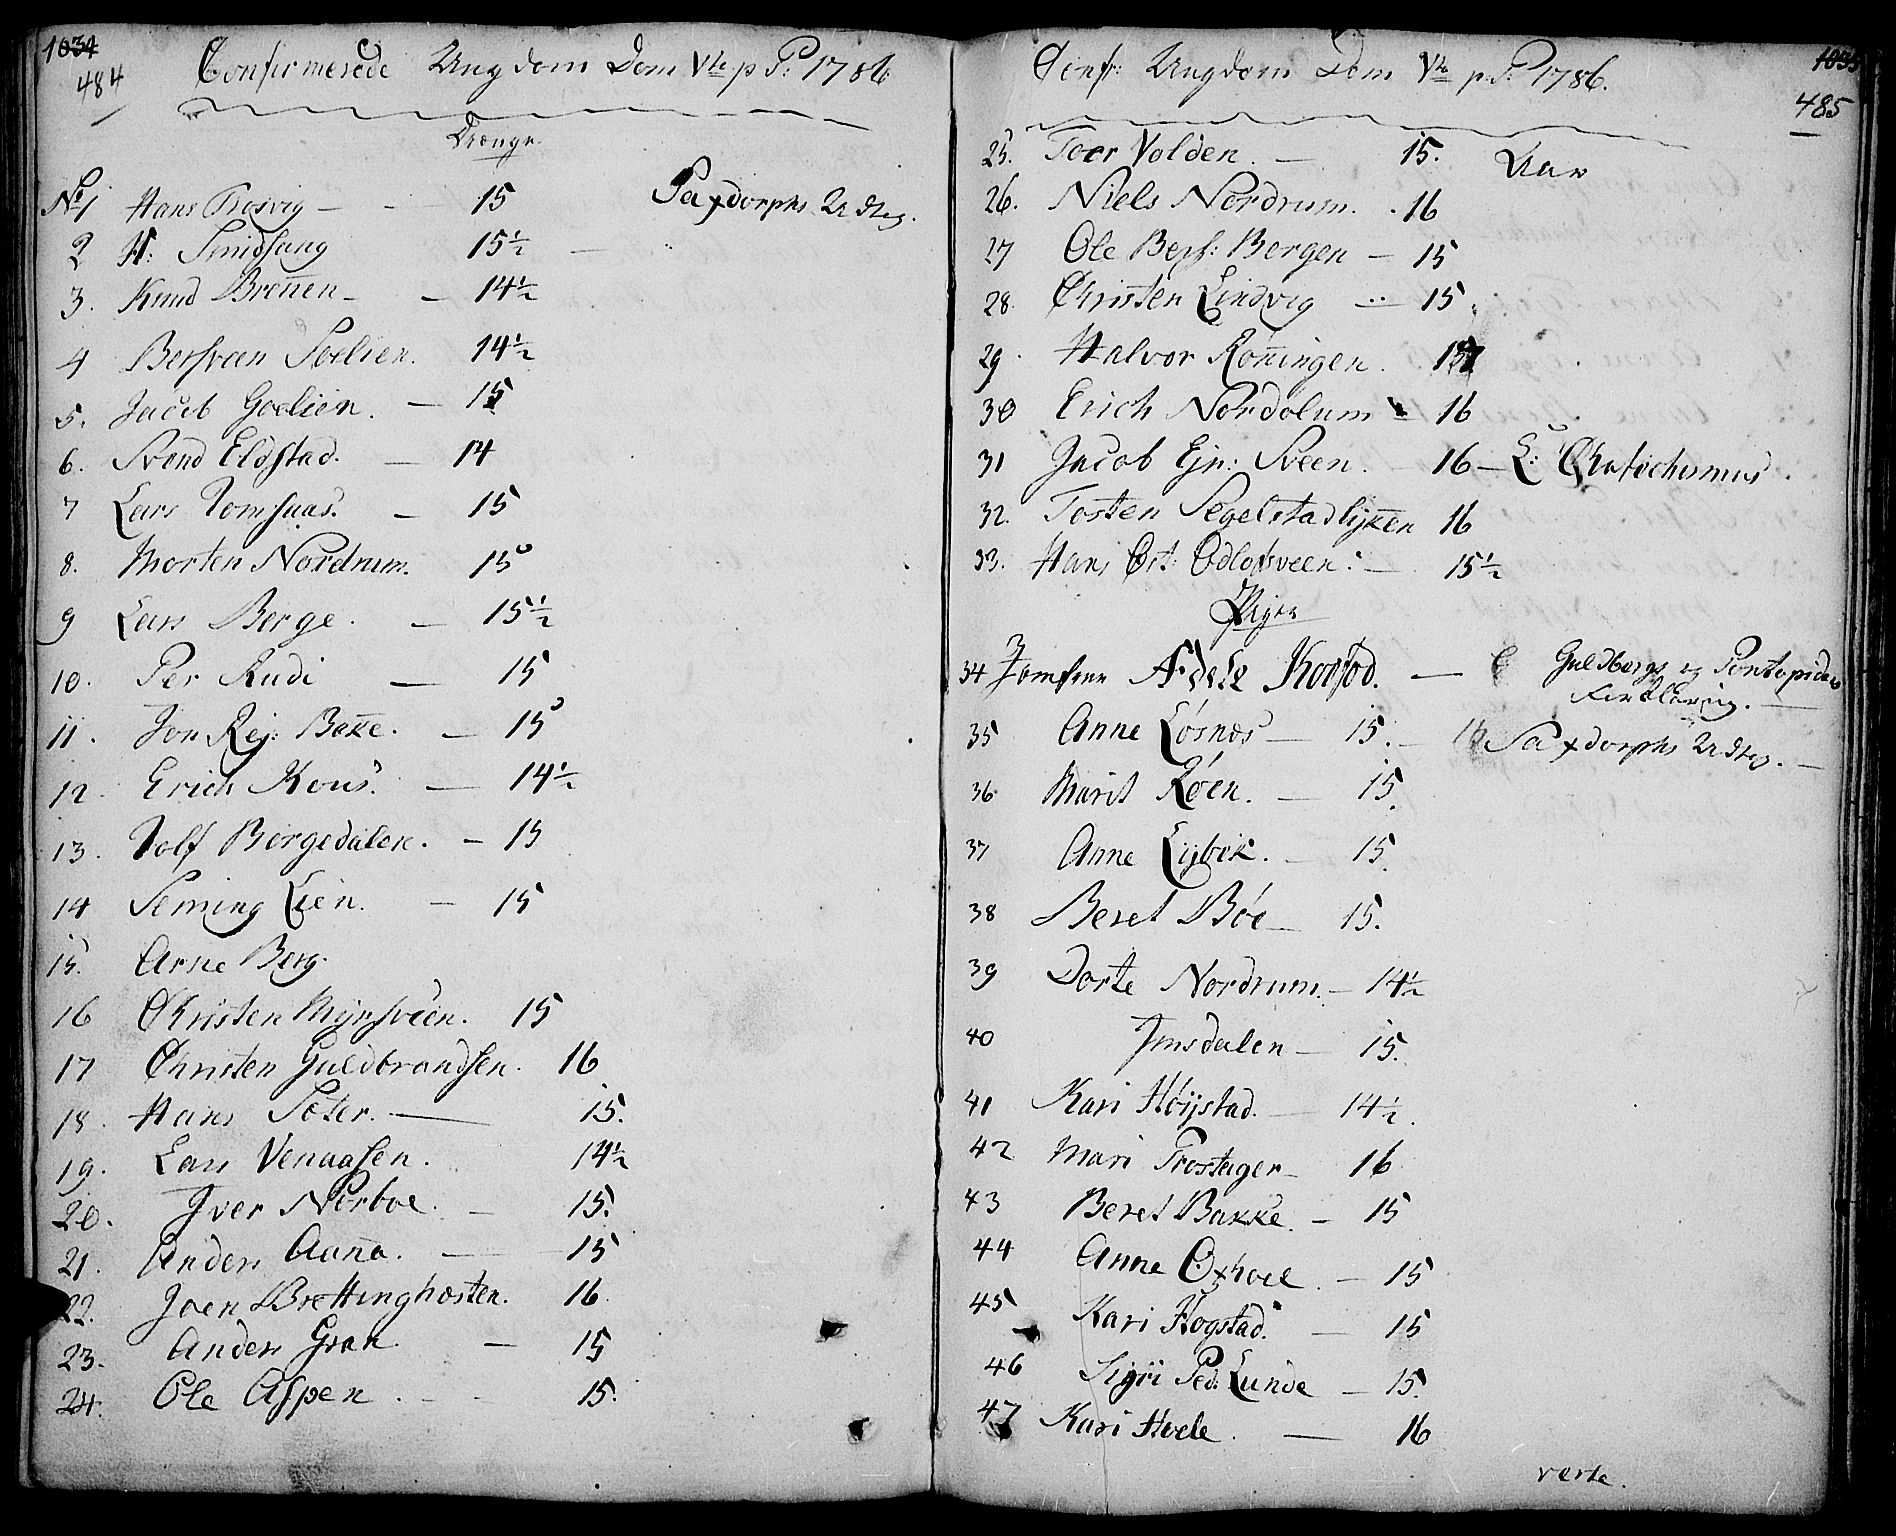 1034
484
Confirmerede Ungdom Dom Vte p. P: 1786
Drænge
No 1 Hans Rosvig - - 15 Saxdorphs Udtog.
2 H: Smidsang 15½ -
3. Knud Brennen - - 14½
4 Bersvæn Soelien. 14½
5. Jacob Goelien. - 15
6. Svend Eldstad. - 14
7 Lars Tomsaas. - 15
8. Morten Nordrum. 15
9 Lars Berge. - 15½
10. Per Rudi - 15
11. Jon Rej: Bakke. - 15
12. Erich Kous. - 14½
13. Rolf Borgedalen. - 15
14 Seming Lien. - 15
15. Arne Berg.
16 Christen Myrsveen. 15
17 Christen Guldbrandsen. 16
18. Hans Sæter. - 15.
19. Lars Venaasen. 14½
20. Iver Nørboe. - 15.
21. Anders Aunna. - 15
22. Joen Brettinghosten. 16
23. Anders Gran. - 15
24. Ole Aspen. - - 15.
1035
485
Conf: Ungdom Dom Vte p. P: 1786.
25. Toer Volden. - 15. Aar
26. Niels Nordrum. . 16
27 Ole Bersv: Borgen - 15
28. Christen Lindvig - 15.
29. Halvor Ronningen. 15
30 Erich Nordolum - 16
31 Jacob Ejn: Sveen. 16 - L: Chatechismus.
32. Tosten Segelstadlykken 16
33. Hans Ost: Odlodsveen. - 15½
Piger
34 Jomfrue Adele Korfod. - Guldbergs og Pontopidans
Forklaring. -
35 Anne Løsnæs - 15. - Saxdorphs Udtog. -
36 Marit Røen. - 15.
37 Anne Lysbek. - 15
38 Beret Bøe - 15.
39 Dorte Nordrum. - 14½
40 Imsdalen - 15.
41 Kari Høijstad. - 14½.
42 Mari Trostager - 16
43 Beret Bakke. - 15
44 Anne Oxhoel. - 15
45 Kari Hogstad. - 15
46 Sigri Ped: Lunde - 15.
47 Kari Hoele. - 16
verte.